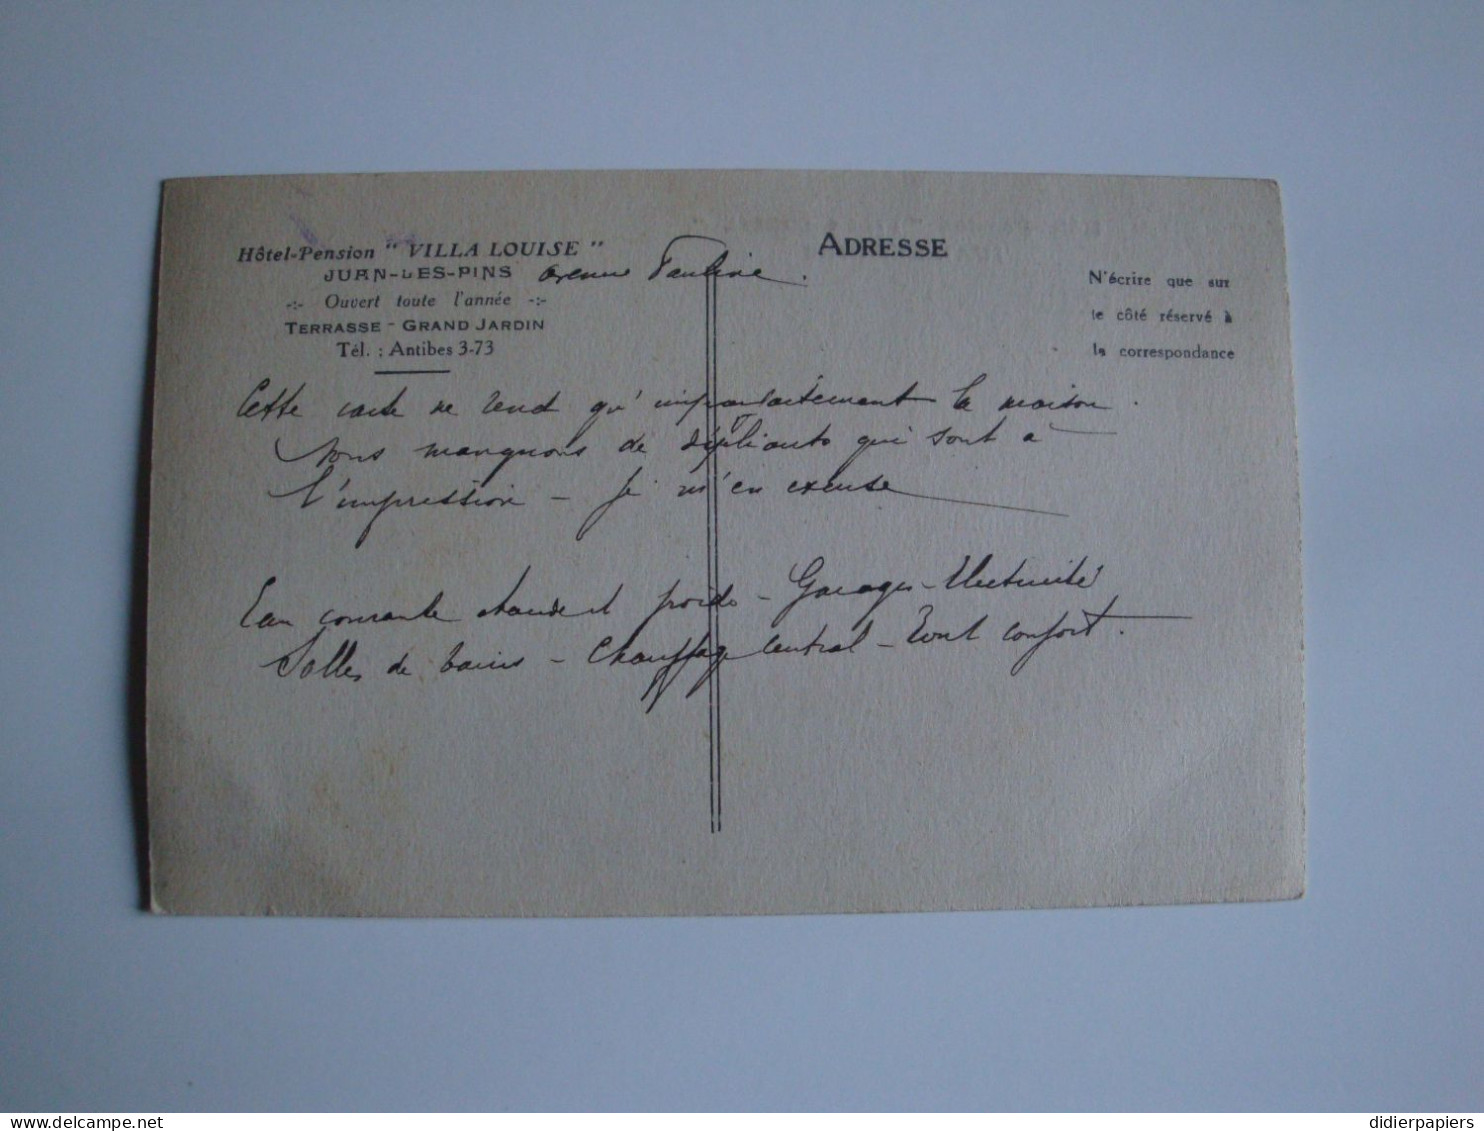 Hôtel-Pension " VILLA LOUISE "
JUAN-LES-PINS avenue Pauline.
-:- Ouvert toute l'année -:-
TERRASSE - GRAND JARDIN
Tél. : Antibes 3-73
ADRESSE
N'écrire que sur
le côté réservé à
la correspondance
Cette carte ne rend qu'imparfaitement la maison.
Nous manquons de dépliants qui sont à
l'impression - Je m'en excuse
Eau courante chaude et froide - Garages - Electricité
Salles de bains - Chauffage central - Tout confort.
delcampe.net
didierpapiers